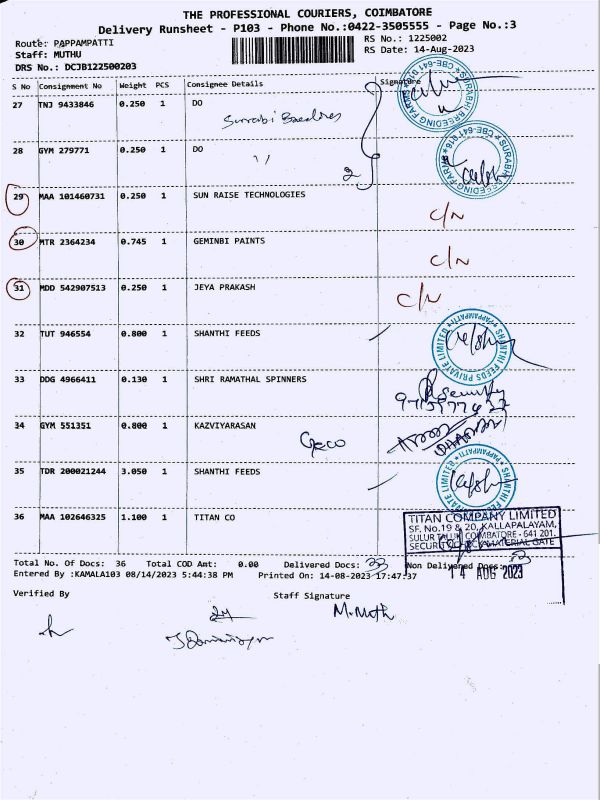 THE PROFESSIONAL COURIERS, COIMBATORE
Delivery Runsheet - P103 - Phone No.:0422-3505555 - Page No.:3
Route: PAPPAMPATTI RS No.: 1225002
Staff: MUTHU RS Date: 14-Aug-2023
DRS No.: DCJB122500203
S No Consignment No Weight PCS Consignee Details Signature
27 TNJ 9433846 0.250 1 DO
28 GYM 279771 0.250 1 DO
2
29 MAA 101460731 0.250 1 SUN RAISE TECHNOLOGIES
C/N
30 MTR 2364234 0.745 1 GEMINBI PAINTS
C/N
31 MDD 542907513 0.250 1 JEYA PRAKASH
C/N
32 TUT 946554 0.800 1 SHANTHI FEEDS
SHANTHI FEEDS PRIVATE LIMITED
PAPPAMPATTI
33 DDG 4966411 0.130 1 SHRI RAMATHAL SPINNERS
Security
34 GYM 551351 0.800 1 KAZVIYARASAN
35 TDR 200021244 3.050 1 SHANTHI FEEDS
36 MAA 102646325 1.100 1 TITAN CO
TITAN COMPANY LIMITED
SF. No.19 & 20, KALLAPALAYAM,
SULUR TALUK COIMBATORE - 641 201.
SECURITY MATERIAL GATE
14 AUG 2023
Total No. Of Docs: 36 Total COD Amt: 0.00 Delivered Docs: 33 Non Delivered Docs:
Entered By :KAMALA103 08/14/2023 5:44:38 PM Printed On: 14-08-2023 17:47:37
Verified By Staff Signature
M.Muth